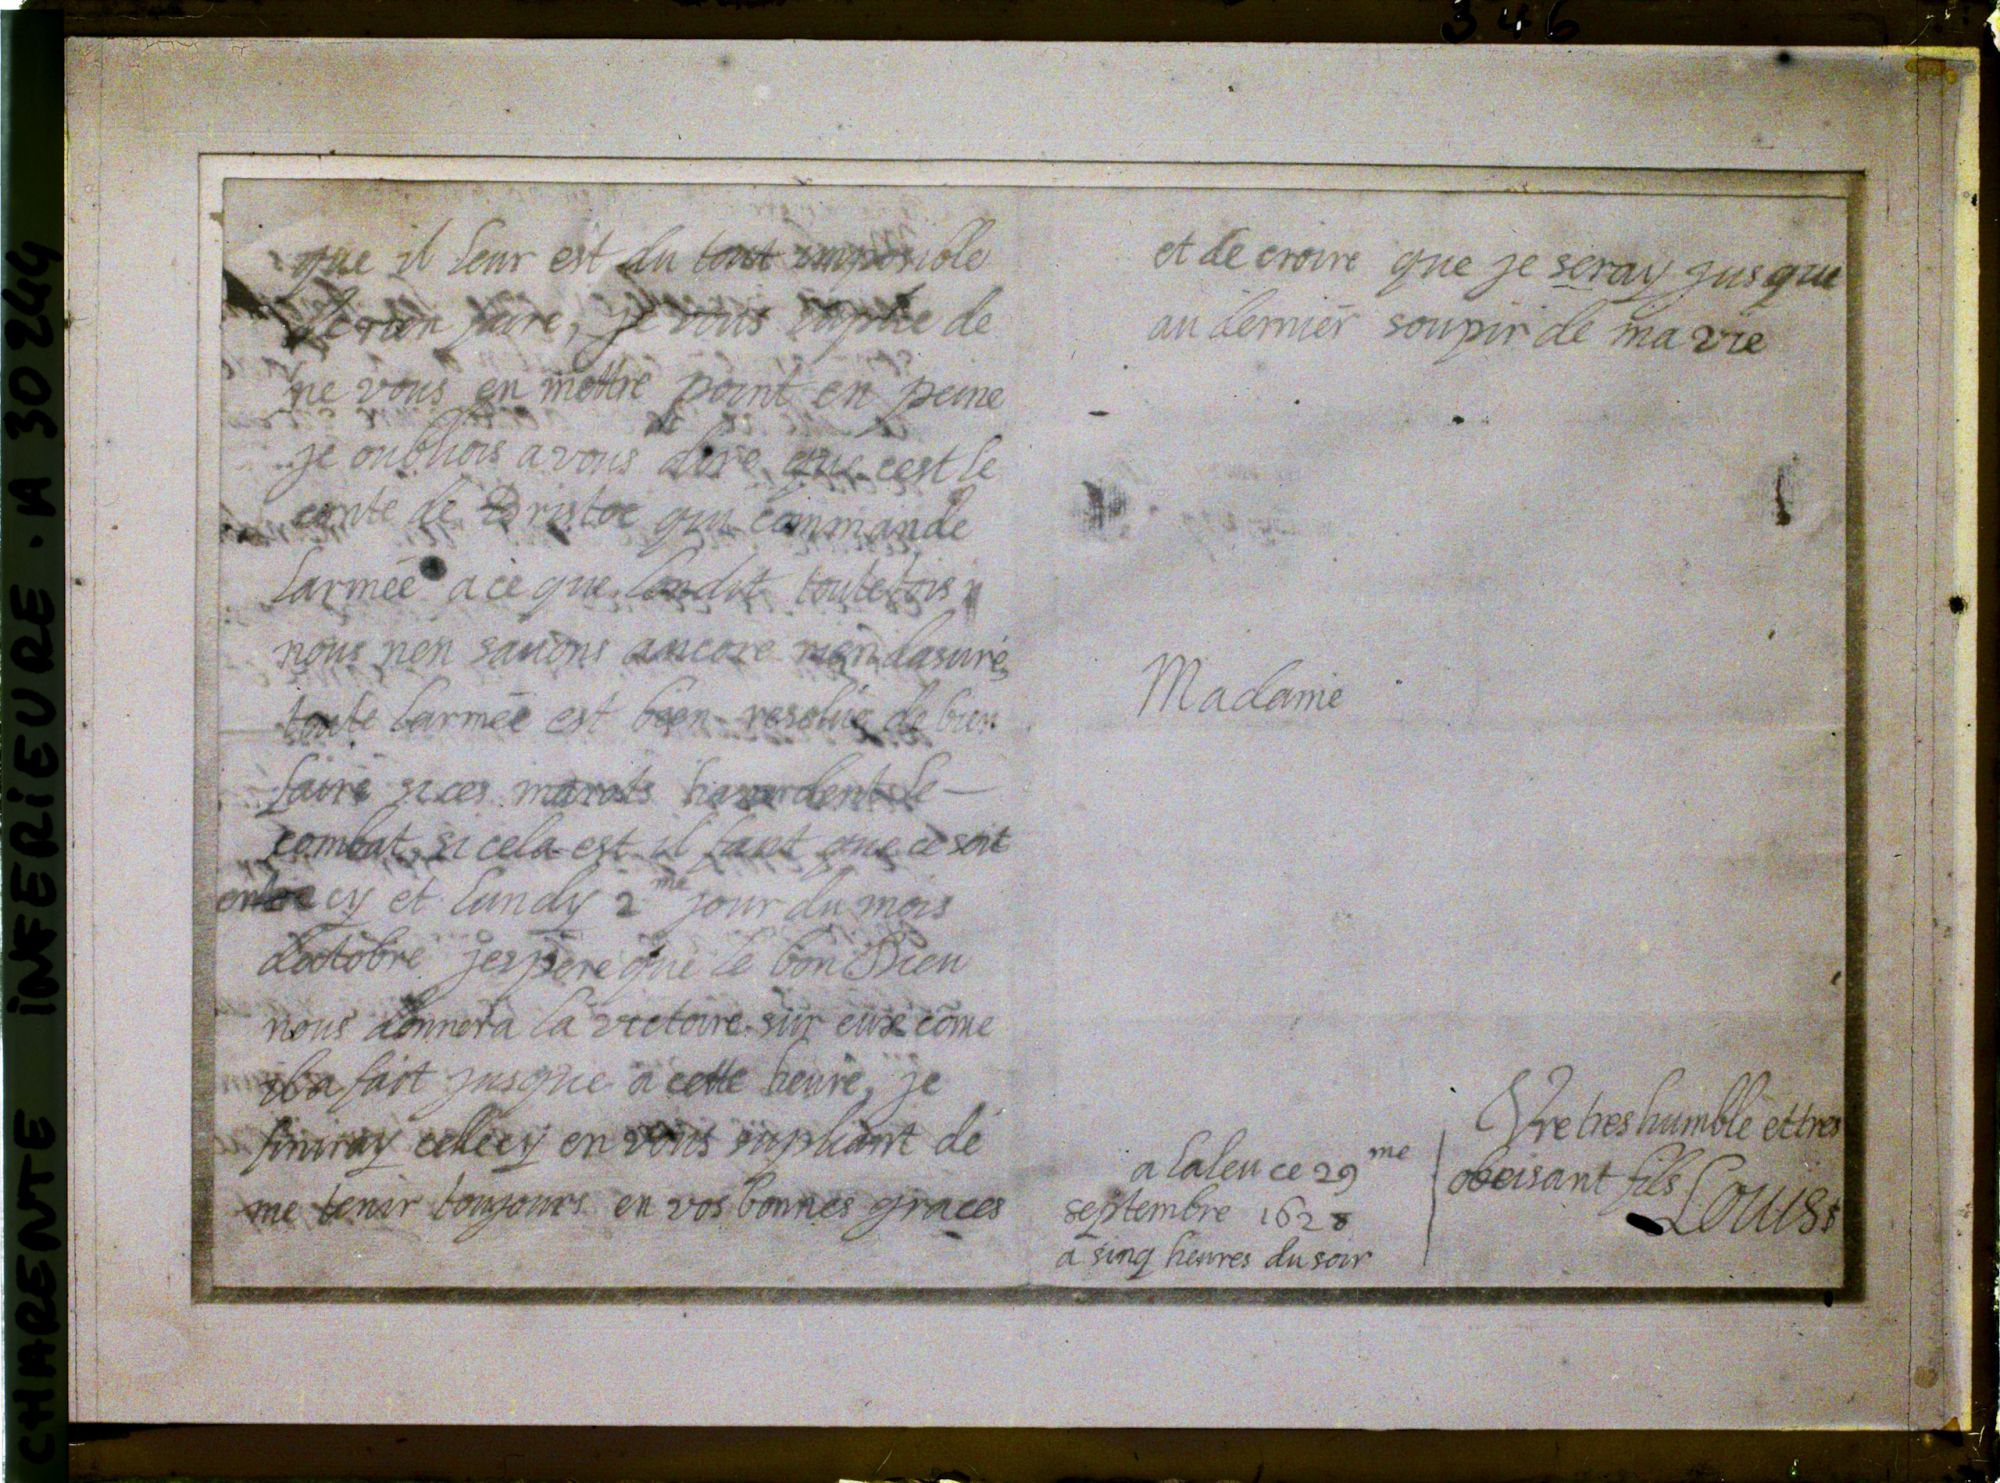 346
CHARENTE INFERIEURE . A 30 244
que il leur est du tout imposible
de rien faire, je vous suplie de
ne vous en mettre point en peine
je oubliois a vous dire que cest le
conte de Bristoc qui commande
larmée a ce que londit toutefois
nous nen sauons ancore rien dasuré
toute larmée est bien resolue de bien
faire si ces marots hasardent le
combat, si cela est il faut que ce soit
entre cy et lundy 2me jour du mois
doctobre jespere que le bon Dieu
nous donnera la victoire sur eux come
il a fait jusque a cette heure, je
finiray cellecy en vous supliant de
me tenir toujours en vos bonnes graces
et de croire que je seray jusque
au dernier soupir de ma vie
Madame
Vre tres humble et tres
obeisant fils
Louis
a laleu ce 29me
septembre 1628
a sinq heures du soir